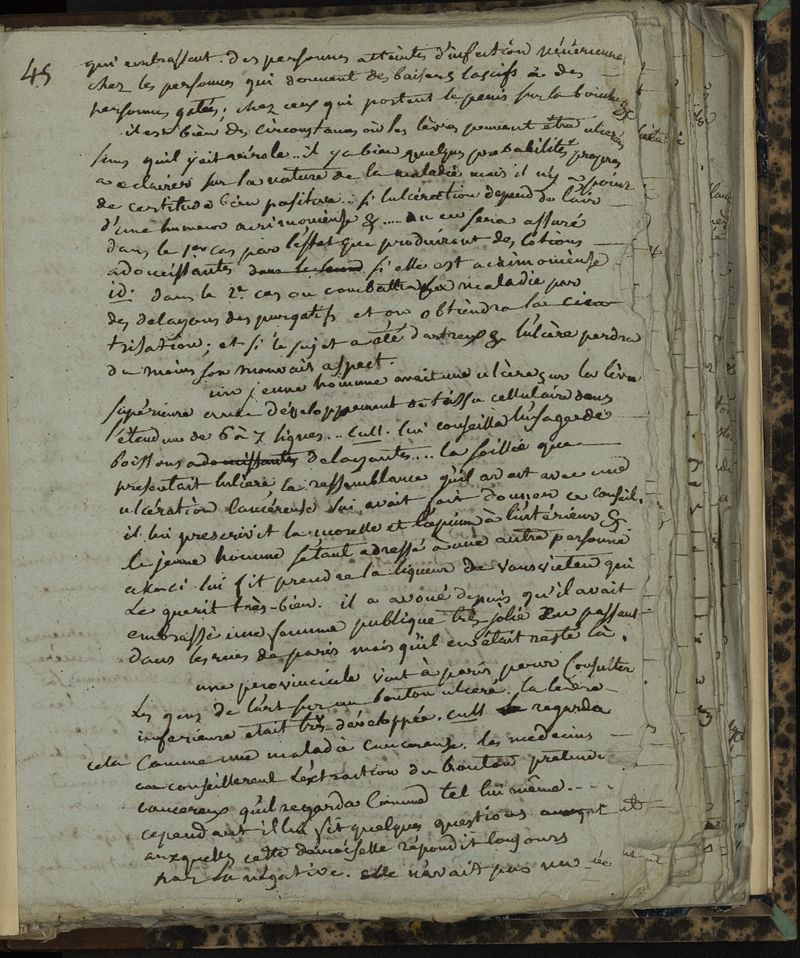 45
qui embrassent des personnes atteintes d'infection vénérienne
chez les personnes qui donnent des baisers lascifs à des
personnes gatées; chez ceux qui portent le penis sur la bouche &
il est bien des circonstances où les lèvres peuvent être ulcérées
sans quil y ait vérole.. il y a bien quelques probabilités propres
a eclairer sur la nature de la maladie mais il n'y a point
de certitude bien positive.. si l'ulcération depend de
d'une humeur acrimonieuse &..... on en sera assuré
dans le 1er cas par l'effet que produiront des lotions
adoucissantes dans le second si elle est acrimonieuse
id. dans le 2e cas on combattra la maladie par
des delayans des purgatifs et on obtiendra la cica
trisation; et si le sujet a été dartreux & l'ulcère perdra
du moins son mauvais aspect.
un jeune homme avait une ulcère sur la lèvre
supérieure avec développement de tissu cellulaire dans
l'étendue de 6 à 7 lignes... Cull. lui conseilla l'usage de
boissons adoucissantes delayantes... la saillie que
presentait l'ulcère la ressemblance qu'il avait avec une
ulcération cancéreuse lui avait fait donner ce conseil.
il lui prescrivit la morelle et l'opium à l'intérieur &
le jeune homme s'étant adressé a une autre personne
celle-ci lui fit prendre la liqueur de Vanswieten qui
le guerit très-bien. il a avoué depuis qu'il avait
embrassé une femme publique très jolie en passant
dans les rues de paris mais qu'il en était resté là.
une provinciale vint à paris pour consulter
les gens de l'art sur un bouton ulcéré. la lèvre
inferieure etait très-développée. Cull. regarda
cela comme une maladie cancereuse. les medecins
conseillerent l'extraction du bouton pretendu
cancereux qu'il regarda comme tel lui même....
cependant il lui fit quelques questions
auxquelles cette demoiselle répondit toujours
par la négative. elle n'avait pas